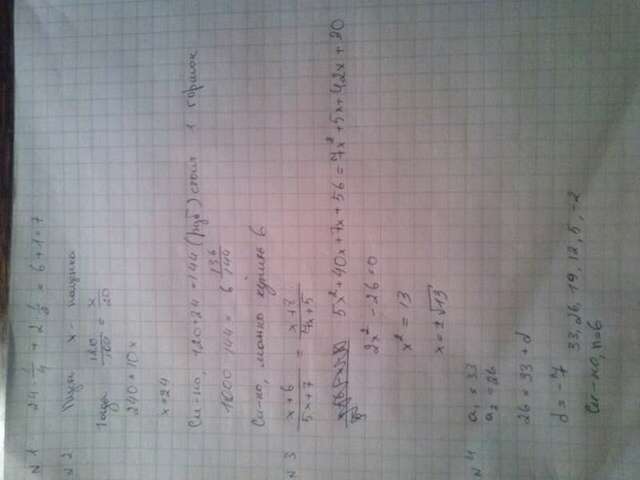 N 1 24 · 1/4 + 2 · 1/2 = 6 + 1 = 7
N 2 Пусть x - наценка
Тогда 120/100 = x/20
240 = 10x
x = 24
Сл-но, 120+24=144 (руб) стоил 1 горшок
1000 : 144 = 6 136/144
Сл-но, можно купить 6
N 3 x+6/5x+7 = x+8/7x+5
5x²+40x+7x+56=7x²+5x+42x+30
2x²-26=0
x²=13
x=±√13
N 4 a₁=33
a₂=26
26=33+d
d=-7 33, 26, 19, 12, 5, -2
Сл-но, n=6